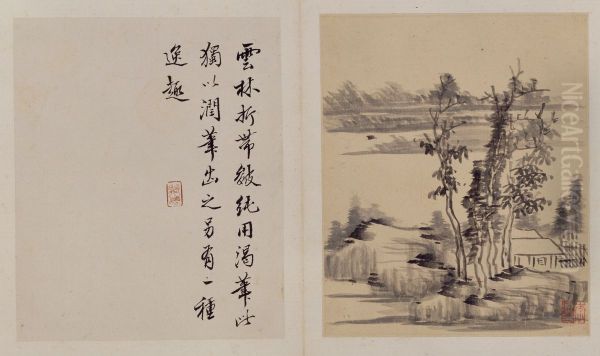 雲林折帶皴純用渴筆此
獨以潤筆出之另有一種
逸趣
NiceArtGallery